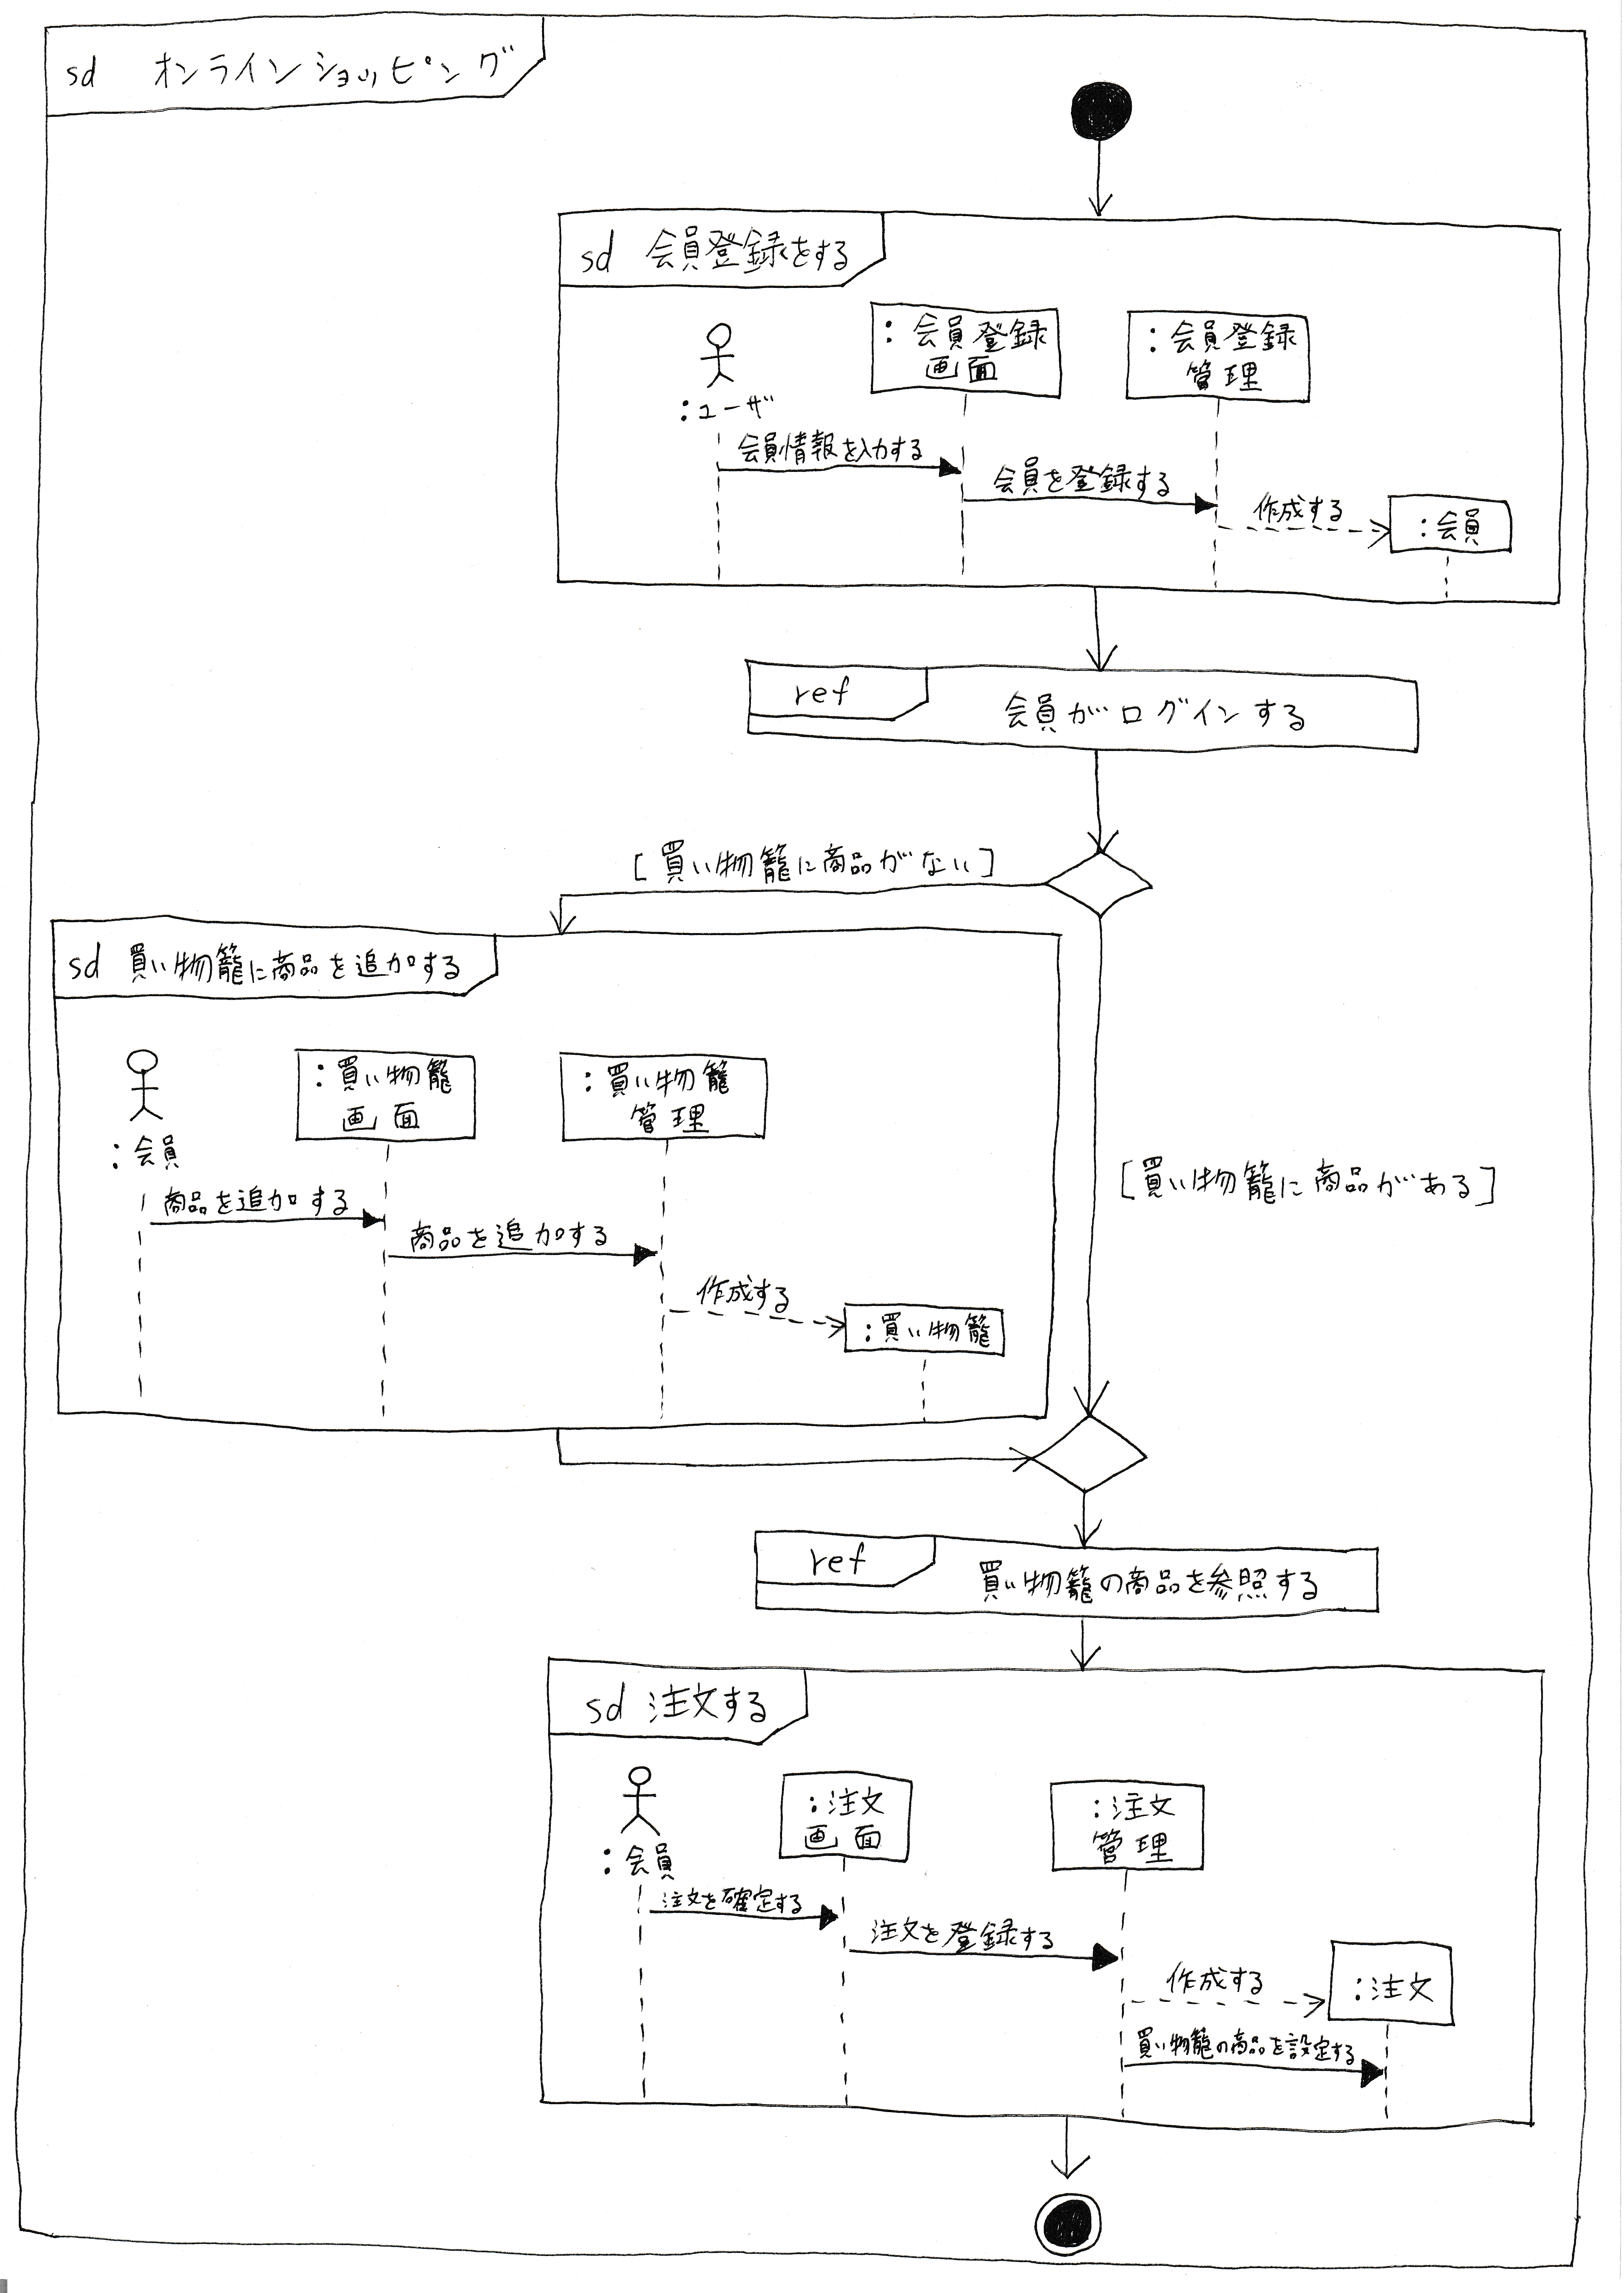 sd オンラインショッピング
sd 会員登録をする
:ユーザ
:会員登録
画面
:会員登録
管理
会員情報を入力する
会員を登録する
作成する
:会員
ref
会員がログインする
[買い物籠に商品がない]
sd 買い物籠に商品を追加する
:会員
:買い物籠
画面
:買い物籠
管理
商品を追加する
商品を追加する
作成する
:買い物籠
[買い物籠に商品がある]
ref
買い物籠の商品を参照する
sd 注文する
:会員
:注文
画面
:注文
管理
注文を確定する
注文を登録する
作成する
:注文
買い物籠の商品を設定する